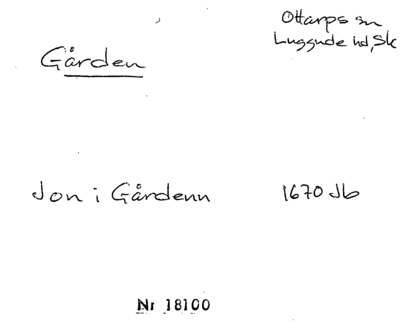 Ottarps sn
Luggude hd, Sk
Gården
Jon i Gårdenn 1670 Jb
Nr 18100